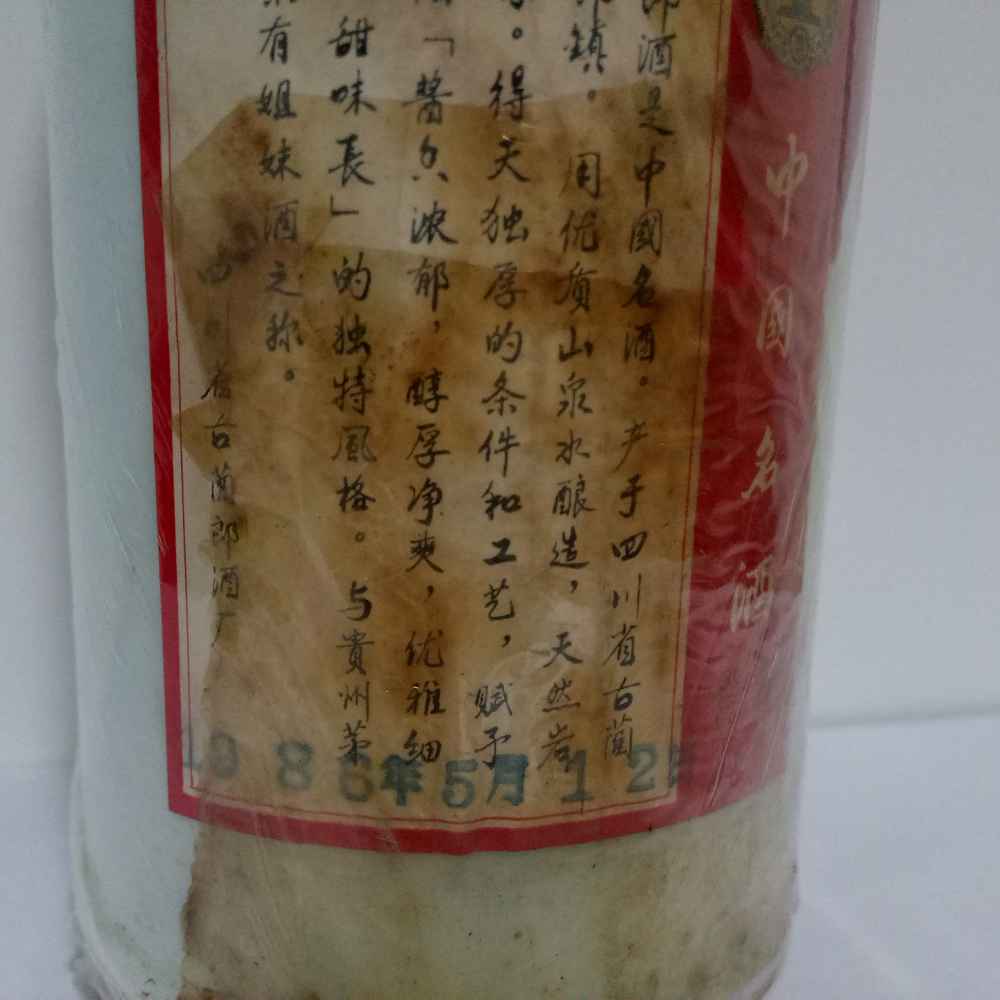 中國名酒
郎酒是中國名酒。产于四川省古蔺
鎮。用优质山泉水酿造，天然岩
。得天独厚的条件和工艺，赋予
「醬香浓郁，醇厚净爽，优雅细
甜味長」的独特風格。与貴州茅
有姐妹酒之称。
古蔺郎酒厂
1986年5月12日